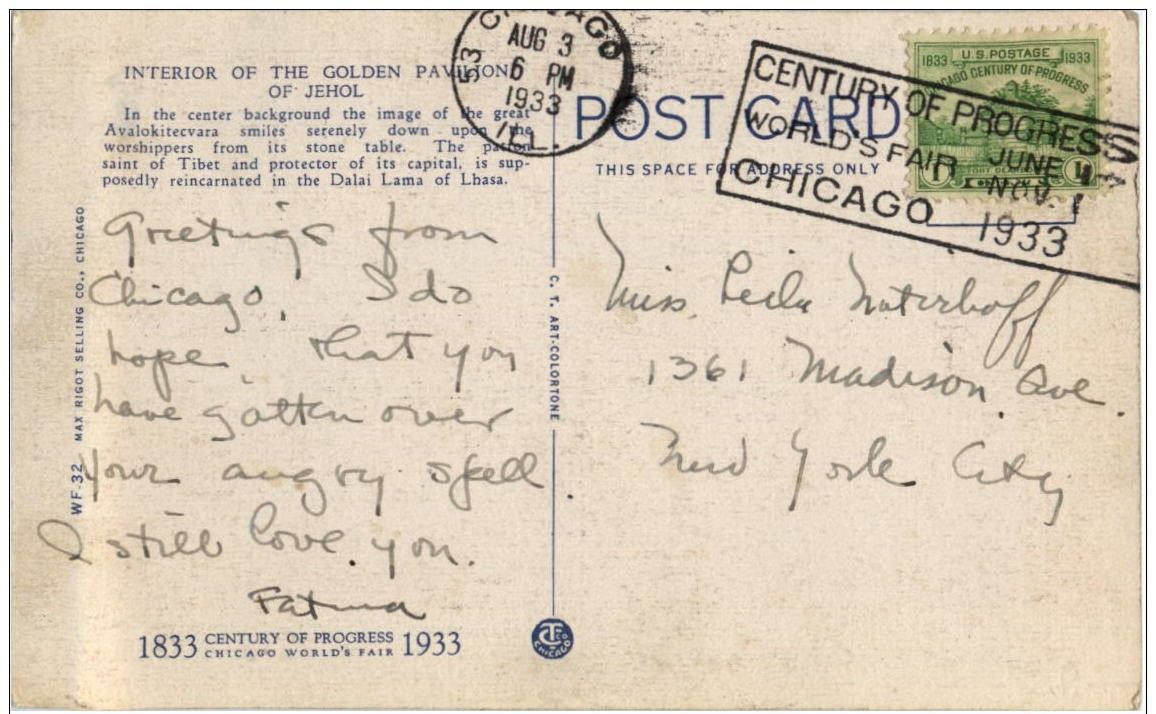 INTERIOR OF THE GOLDEN PAVILION
OF JEHOL
In the center background the image of the great
Avalokitecvara smiles serenely down upon the
worshippers from its stone table. The patron
saint of Tibet and protector of its capital, is sup-
posedly reincarnated in the Dalai Lama of Lhasa.
Greetings from
Chicago. I do
hope that you
have gotten over
your angry spell.
I still love you.
Fatima
1833 CENTURY OF PROGRESS 1933
CHICAGO WORLD'S FAIR
WF-32 MAX RIGOT SELLING CO., CHICAGO
C. T. ART-COLORTONE
CT CO
CHICAGO
CHICAGO
53
AUG 3
6 PM
1933
ILL.
POST CARD
THIS SPACE FOR ADDRESS ONLY
CENTURY OF PROGRESS
WORLD'S FAIR JUNE 1
CHICAGO NOV. 1
1933
U.S. POSTAGE
1833 1933
CHICAGO CENTURY OF PROGRESS
FORT DEARBORN
1 1
Miss Leila
1361 Madison Ave.
New York City